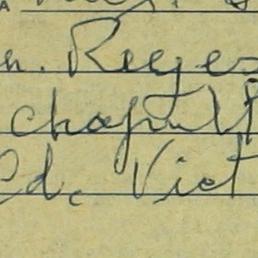 n. Reyes
Chapult
Cd. Vict